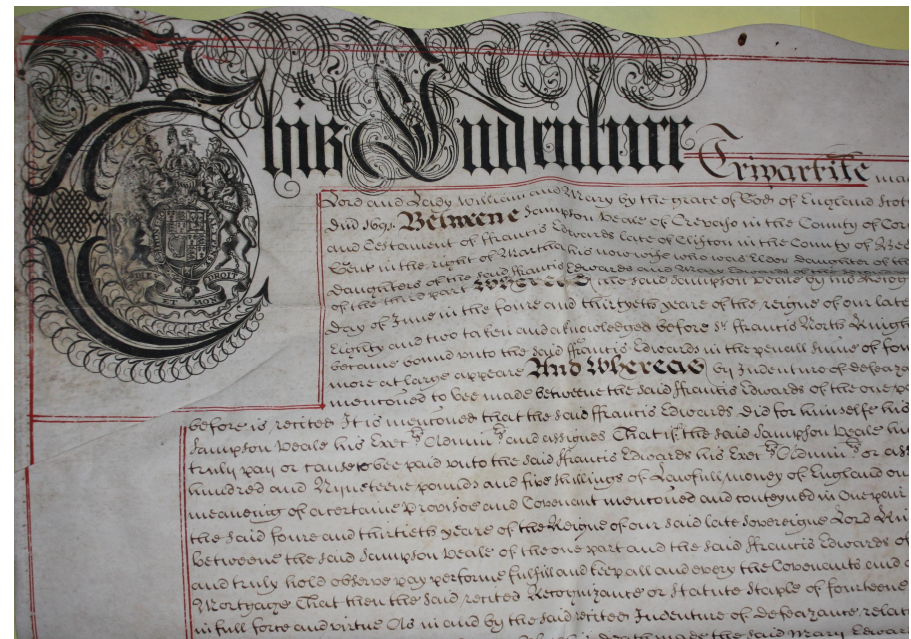 This Indenture Tripartite
Lord and Lady William and Mary by the grace of God of England Scott
Dni 1691. Betweene Sampson Veale of in the County of
and Testament of ffrancis Edwards late of Clifton in the County of
Gent in the right of Martha his now wife who was Elder daughter of the
daughters of the said ffrancis Edwards and Mary Edwards of the
of the third part Whereas the said Sampson Veale by
day of June in the foure and thirtyeth yeare of the reigne of our late
Eighty and two taken and acknowledged before Sr ffrancis North Knigh
became bound unto the said ffrancis Edwards in the penall summe of
more at large appeare And Whereas by Indenture of defeaza
mentioned to bee made betweene the said ffrancis Edwards of the one
before is recited It is mentioned that the said ffrancis Edwards did for himselfe his
Sampson Veale his Exers Adminrs and assignes That if the said Sampson Veale
truly pay or cause to bee paid unto the said ffrancis Edwards his Exers Adminrs or ass
hundred and Nyneteene pounds and five shillings of Lawfull money of England on
meaneing of a certaine Provisoe and Covenant mentioned and conteyned in One pair
the said foure and thirtieth yeare of the Reigne of our said late Sovereigne Lord
betweene the said Sampson Veale of the one part and the said ffrancis Edwards of
and truly hold observe pay performe fulfill and keep all and every the Covenants and
Mortgage That then the said recited Recognizance or Statute Staple of fourteene
in full force and virtue As in and by the said recited Indenture of defeazance relat
death made the said Mary Edwar
DIEU ET MON DROIT